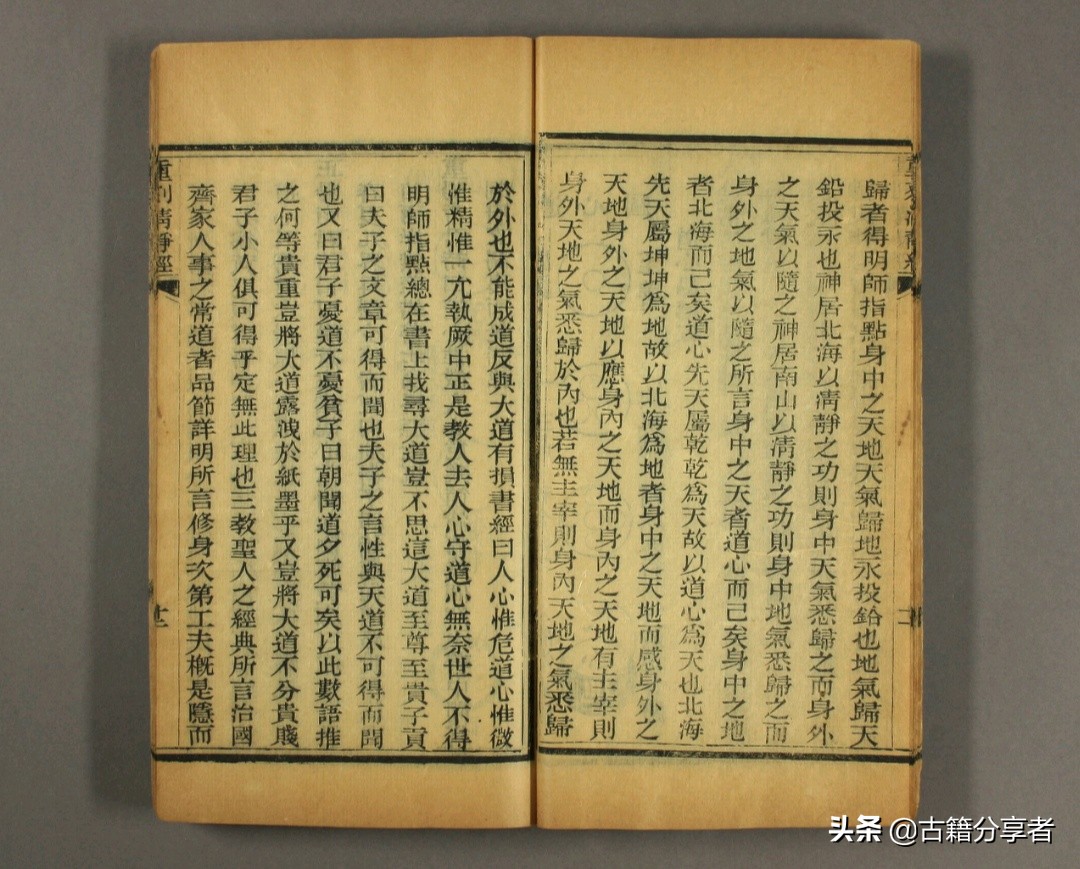 歸者得明師指點身中之天地天氣歸地汞投鉛也地氣歸天
鉛投汞也神居北海以清靜之功則身中天氣悉歸之而身外
之天氣以隨之神居南山以清靜之功則身中地氣悉歸之而
身外之地氣以隨之所言身中之天者道心而已矣身中之地
者北海而已矣道心先天屬乾乾為天故以道心為天也北海
先天屬坤坤為地故以北海為地者身中之天地而感身外之
天地身外之天地以應身內之天地而身內之天地有主宰則
身外天地之氣悉歸於內也若無主宰則身內天地之氣悉歸
於外也不能成道反與大道有損書經曰人心惟危道心惟微
惟精惟一允執厥中正是教人去人心守道心無奈世人不得
明師指點總在書上找尋大道豈不思這大道至尊至貴子貢
曰夫子之文章可得而聞也夫子之言性與天道不可得而聞
也又曰君子憂道不憂貧子曰朝聞道夕死可矣以此數語推
之何等貴重豈將大道露洩於紙墨乎又豈將大道不分貴賤
君子小人俱可得乎定無此理也三教聖人之經典所言治國
齊家人事之常道者品節詳明所言修身次第工夫概是隱而
重刊清靜經
頭条 @古籍分享者